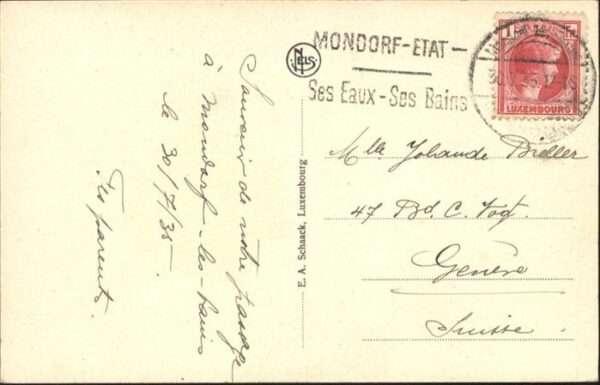 Souvenir de notre passage
à Mondorf-les-bains
le 30/7/35
Tes parents.
NELS
E. A. Schaack, Luxembourg
MONDORF-ETAT-
Ses Eaux-Ses Bains
1 Fr
LUXEMBOURG
Mlle Yolande Bieller
47 Bd. C. Vogt
Genève
Suisse